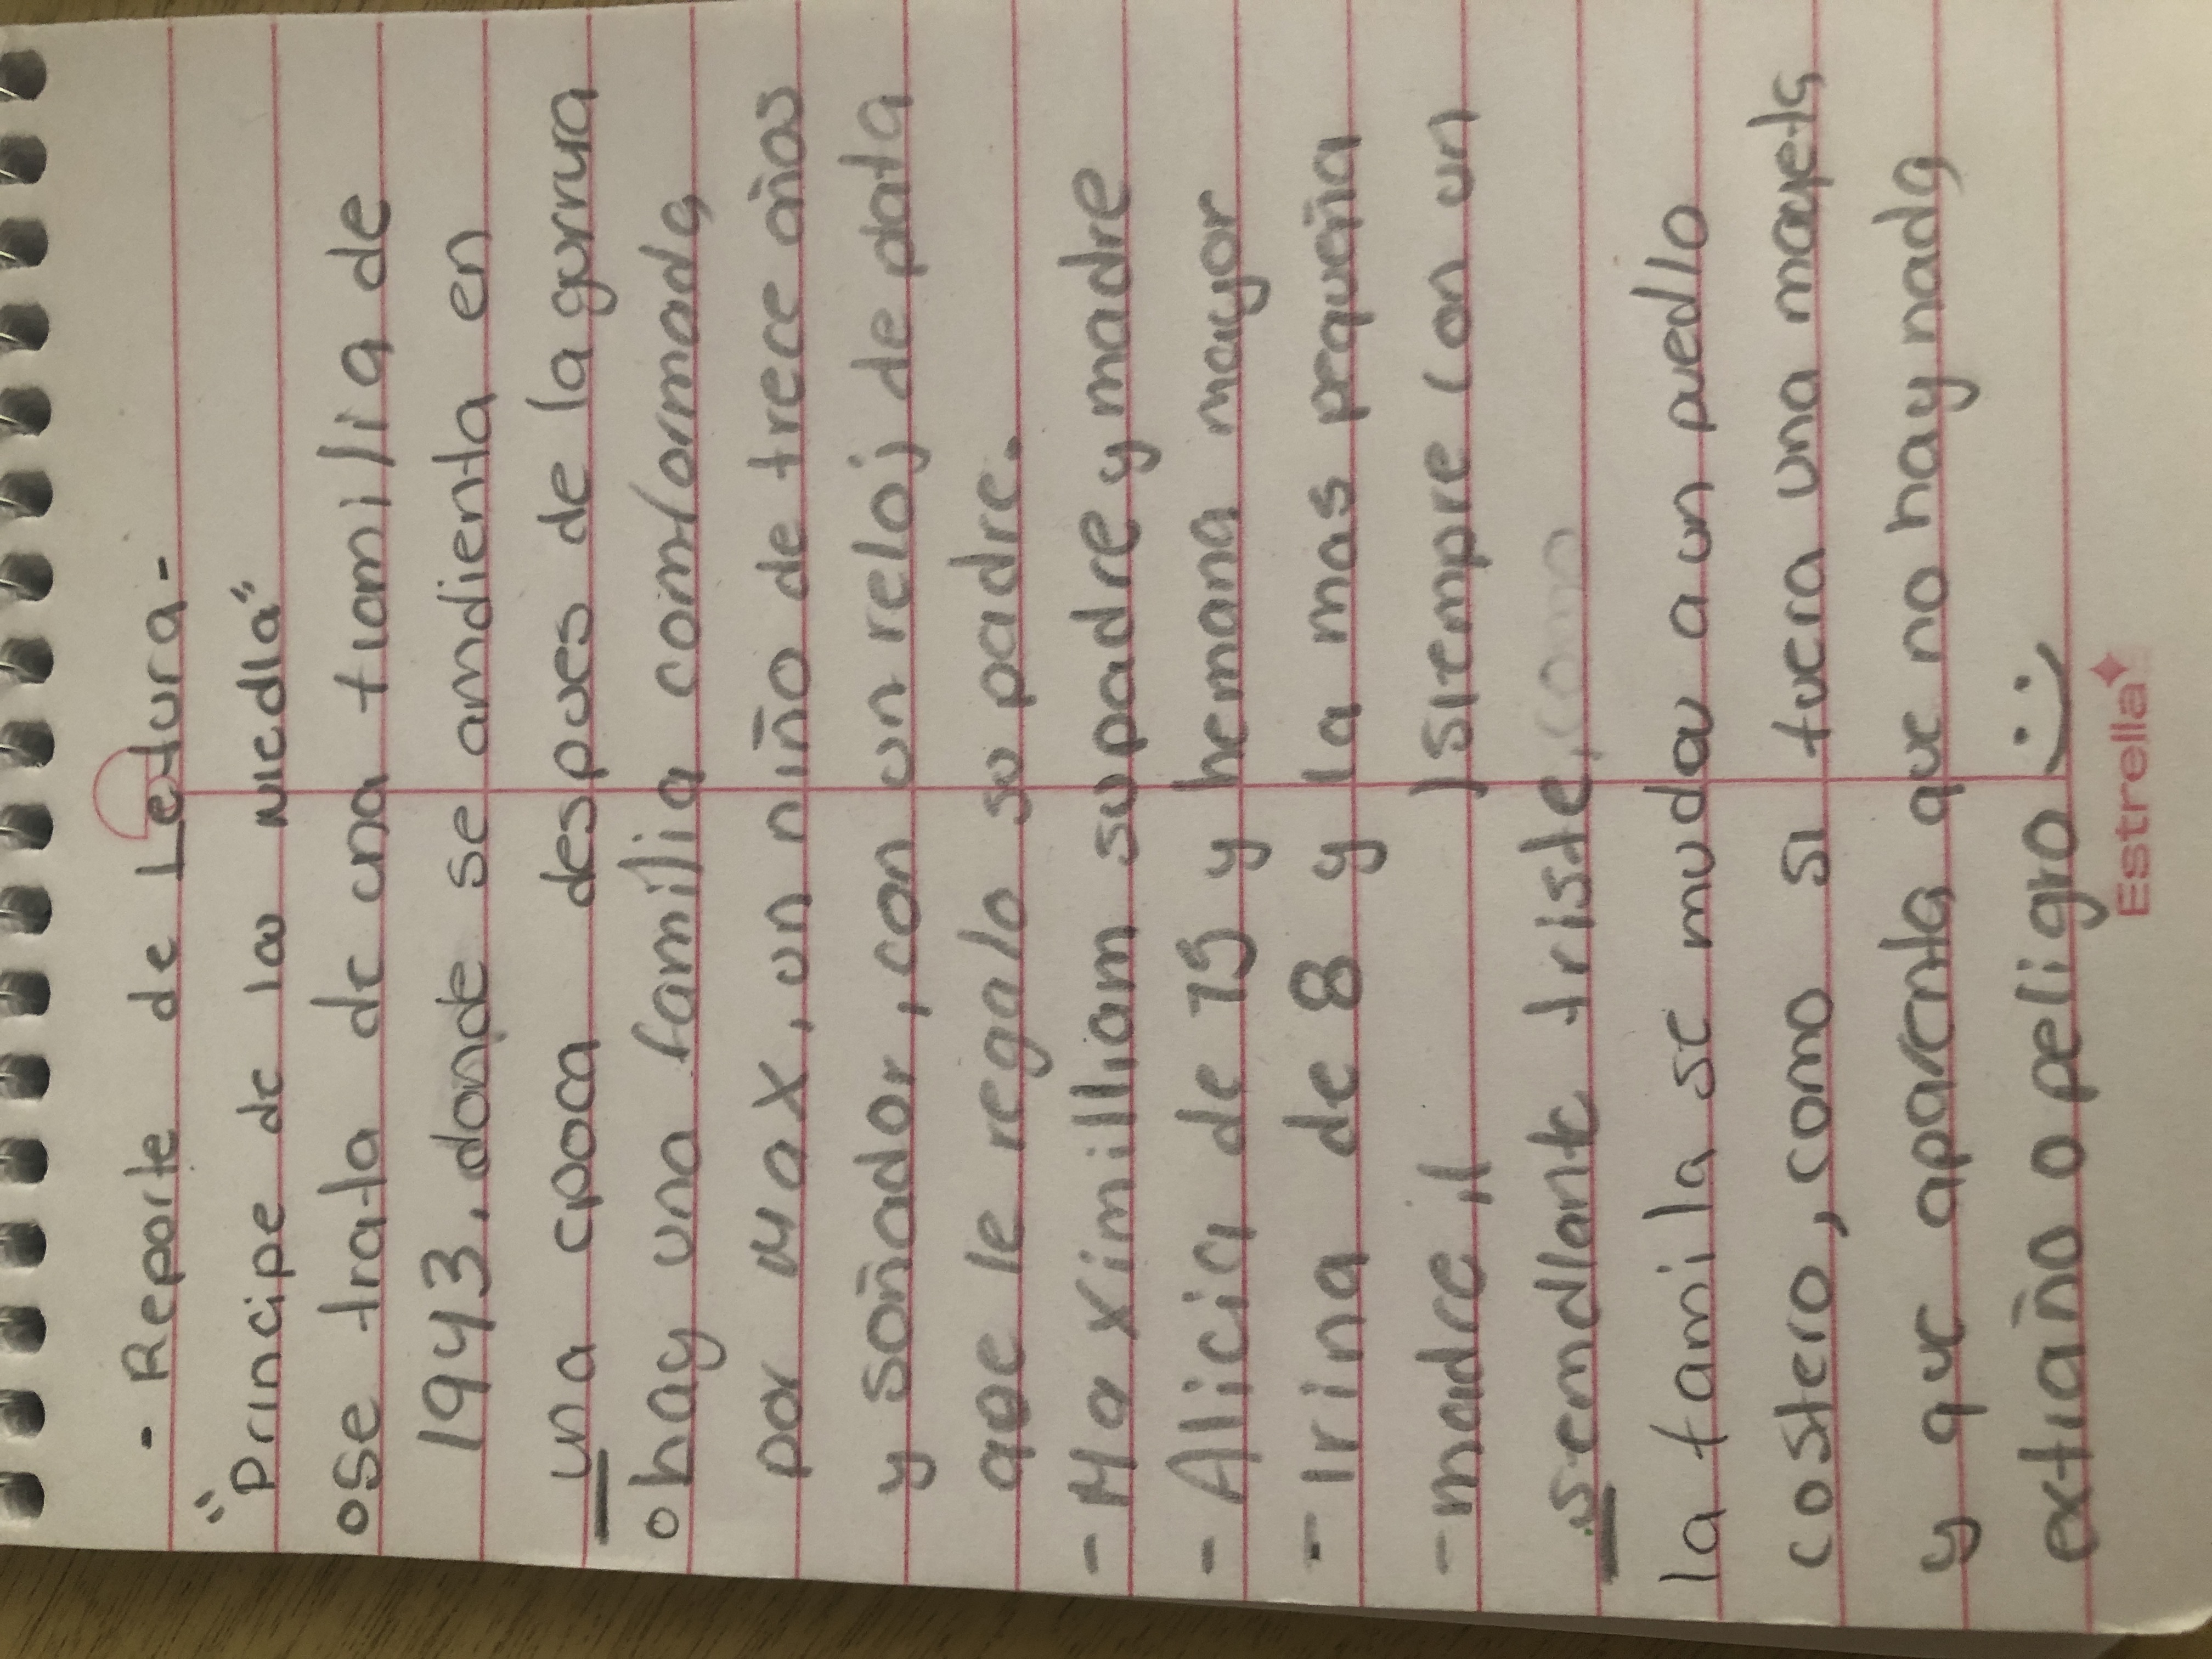 - Reporte de Letura -
"Principe de la niebla"
o se trata de una tuamilia de
1943, donde se ambienta en
una epoca despues de la gurrua
o hay una familia comformada
por Max, un niño de trece años
y soñador, con un reloj de plata
que le regalo su padre.
- Maximilliam su padre y madre
- Alicia de 15 y hemana mayor
- Irina de 8 y la mas pequeña
- madre, siempre con un
semblante triste, como
la familia se muda a un pueblo
costero, como si fuera una maqueta
y que aparenta que no hay nada
extraño o peligro :)
Estrella